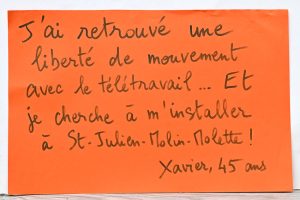 J'ai retrouvé une
liberté de mouvement
avec le télétravail... Et
je cherche à m'installer
à St-Julien-Molin-Molette !
Xavier, 45 ans